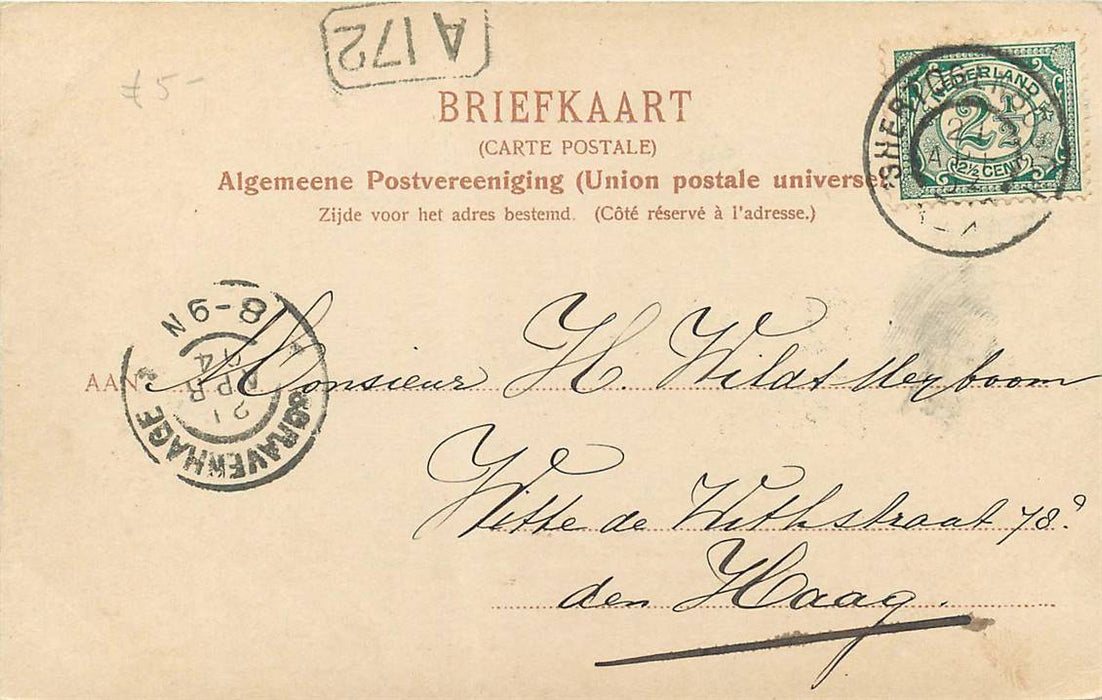 A 172
£5-
BRIEFKAART
(CARTE POSTALE)
Algemeene Postvereeniging (Union postale universe
Zijde voor het adres bestemd. (Côté réservé à l'adresse.)
NEDERLAND
2½
2½ CENT
8-9 N
21
APR
04
SGRAVENHAGE
AAN Monsieur H. Wildt Meyboom
Witte de Withstraat 78ª
den Haag.